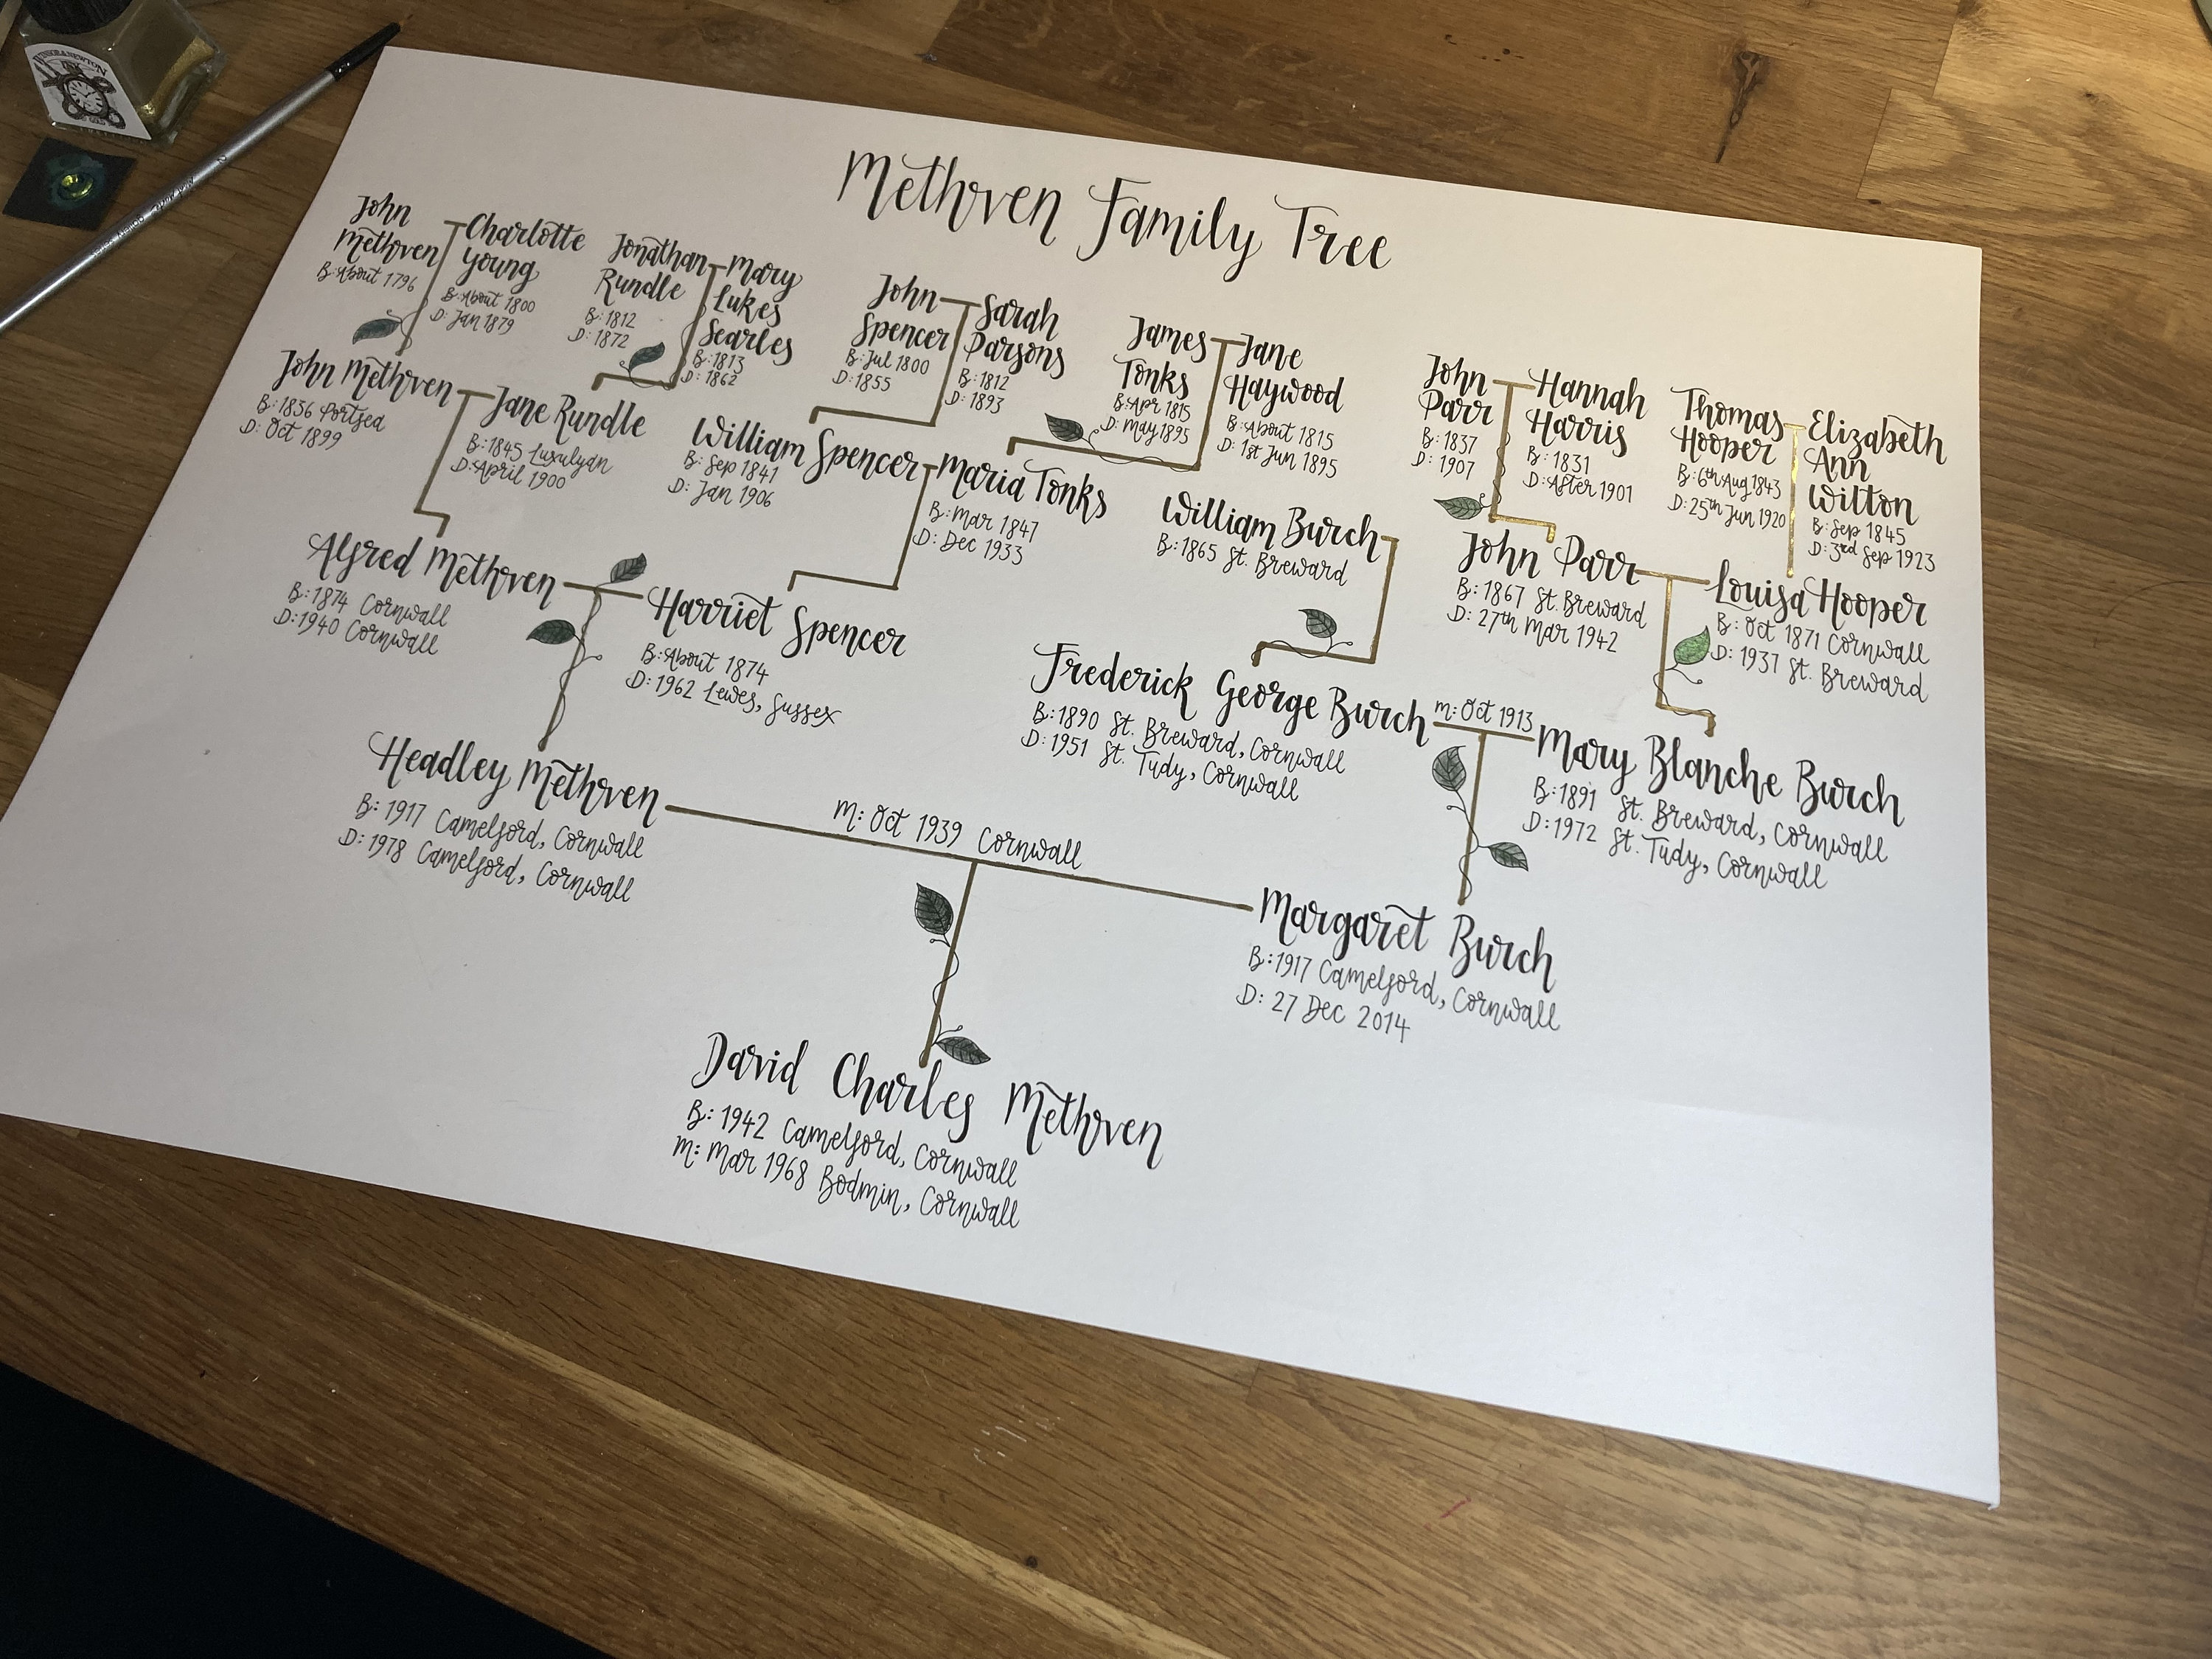 Methven Family Tree
John
Methven
B: About 1796
Charlotte
Young
B: About 1800
D: Jan 1879
Jonathan
Rundle
B: 1812
D: 1872
Mary
Lukes
Searles
B: 1813
D: 1862
John
Spencer
B: Jul 1800
D: 1855
Sarah
Parsons
B: 1812
D: 1893
James
Tonks
B: Apr 1815
D: May 1895
Jane
Haywood
B: About 1815
D: 1st Jun 1895
John
Parr
B: 1837
D: 1907
Hannah
Harris
B: 1831
D: After 1901
Thomas
Hooper
B: 6th Aug 1843
D: 25th Jun 1920
Elizabeth
Ann
Wilton
B: Sep 1845
D: 3rd Sep 1923
John Methven
B: 1836 Portsea
D: Oct 1899
Jane Rundle
B: 1845 Luxulyan
D: April 1900
William Spencer
B: Sep 1841
D: Jan 1906
Maria Tonks
B: Mar 1847
D: Dec 1933
William Burch
B: 1865 St. Breward
John Parr
B: 1867 St. Breward
D: 27th Mar 1942
Louisa Hooper
B: Oct 1871 Cornwall
D: 1937 St. Breward
Alfred Methven
B: 1874 Cornwall
D: 1940 Cornwall
Harriet Spencer
B: About 1874
D: 1962 Lewes, Sussex
Frederick George Burch
B: 1890 St. Breward, Cornwall
D: 1951 St. Tudy, Cornwall
m: Oct 1913
Mary Blanche Burch
B: 1891 St. Breward, Cornwall
D: 1972 St. Tudy, Cornwall
Headley Methven
B: 1917 Camelford, Cornwall
D: 1978 Camelford, Cornwall
m: Oct 1939 Cornwall
Margaret Burch
B: 1917 Camelford, Cornwall
D: 27 Dec 2014
David Charles Methven
B: 1942 Camelford, Cornwall
m: Mar 1968 Bodmin, Cornwall